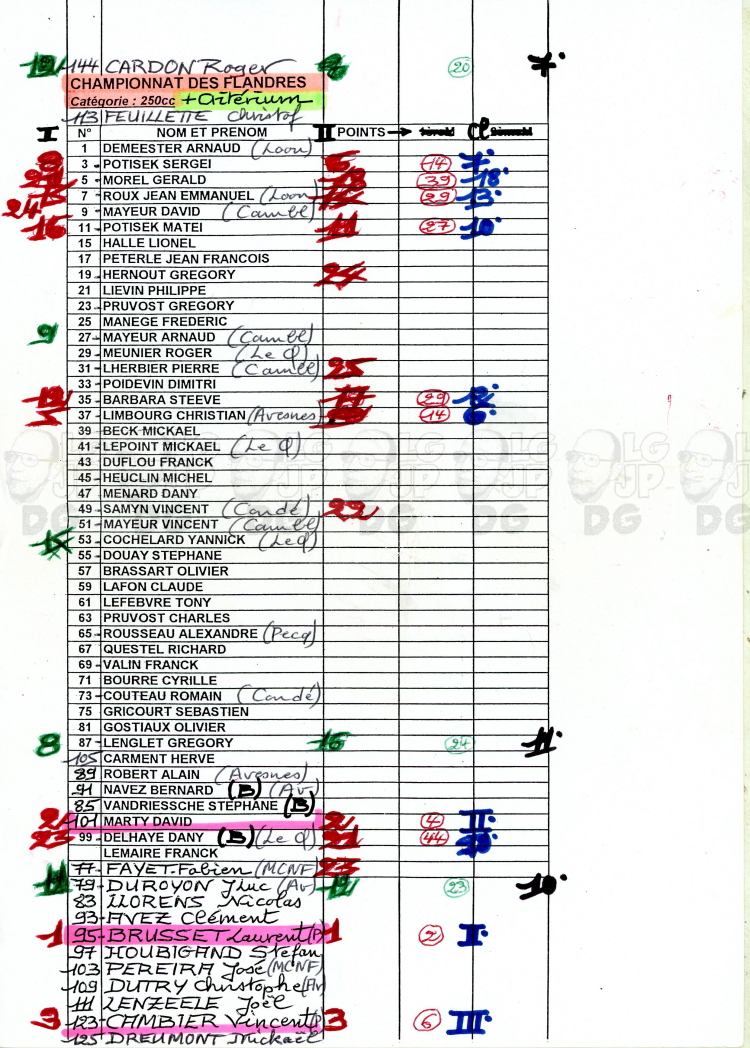 144 CARDON Roger 20 7.
CHAMPIONNAT DES FLANDRES
Catégorie : 250cc + Critérium
113 FEUILLETTE Christof
I N° NOM ET PRENOM II POINTS → Cl
1 DEMEESTER ARNAUD (Laon)
3 - POTISEK SERGEI 14 7.
5 - MOREL GERALD 39 18.
7 - ROUX JEAN EMMANUEL (Loon 29 13.
24 9 - MAYEUR DAVID (Cambl)
16 11 - POTISEK MATEI 11 27 10.
15 HALLE LIONEL
17 PETERLE JEAN FRANCOIS
19 - HERNOUT GREGORY 24
21 LIEVIN PHILIPPE
23 - PRUVOST GREGORY
25 MANEGE FREDERIC
9 27 - MAYEUR ARNAUD (Cambl)
29 - MEUNIER ROGER (Le Q)
31 - LHERBIER PIERRE (Cambl) 25
33 - POIDEVIN DIMITRI
12 35 - BARBARA STEEVE 17 29 12.
37 - LIMBOURG CHRISTIAN (Avesnes) 14 6.
39 BECK MICKAEL
41 - LEPOINT MICKAEL (Le Q)
43 DUFLOU FRANCK
45 - HEUCLIN MICHEL
47 MENARD DANY
49 - SAMYN VINCENT (Condé) 22
51 - MAYEUR VINCENT (Cambl)
53 - COCHELARD YANNICK (LeQ)
55 - DOUAY STEPHANE
57 BRASSART OLIVIER
59 LAFON CLAUDE
61 LEFEBVRE TONY
63 PRUVOST CHARLES
65 - ROUSSEAU ALEXANDRE (Pecq)
67 QUESTEL RICHARD
69 - VALIN FRANCK
71 BOURRE CYRILLE
73 - COUTEAU ROMAIN (Condé)
75 GRICOURT SEBASTIEN
81 GOSTIAUX OLIVIER
8 87 - LENGLET GREGORY 16 24 11.
105 CARMENT HERVE
89 ROBERT ALAIN (Avesnes)
91 NAVEZ BERNARD (B) (Av)
85 VANDRIESSCHE STEPHANE (B)
2 101 MARTY DAVID 2 4 II.
23 99 - DELHAYE DANY (B) (Le Q) 21 44
LEMAIRE FRANCK
77 - FAYET Fabien (MCNF) 23
11 79 - DUROYON Jluc (Av) 12 23 10.
83 LLORENS Nicolas
93 - AVEZ Clément
1 95 - BRUSSET Laurent (P) 1 2 I.
97 HOUBIGAND Stefan
103 PEREIRA José (MCNF)
109 DUTRY Christophe (Av
111 LENZEELE Joël
3 123 - CAMBIER Vincent (P) 3 6 III.
125 DREUMONT Mickaël
LG
JP
DG